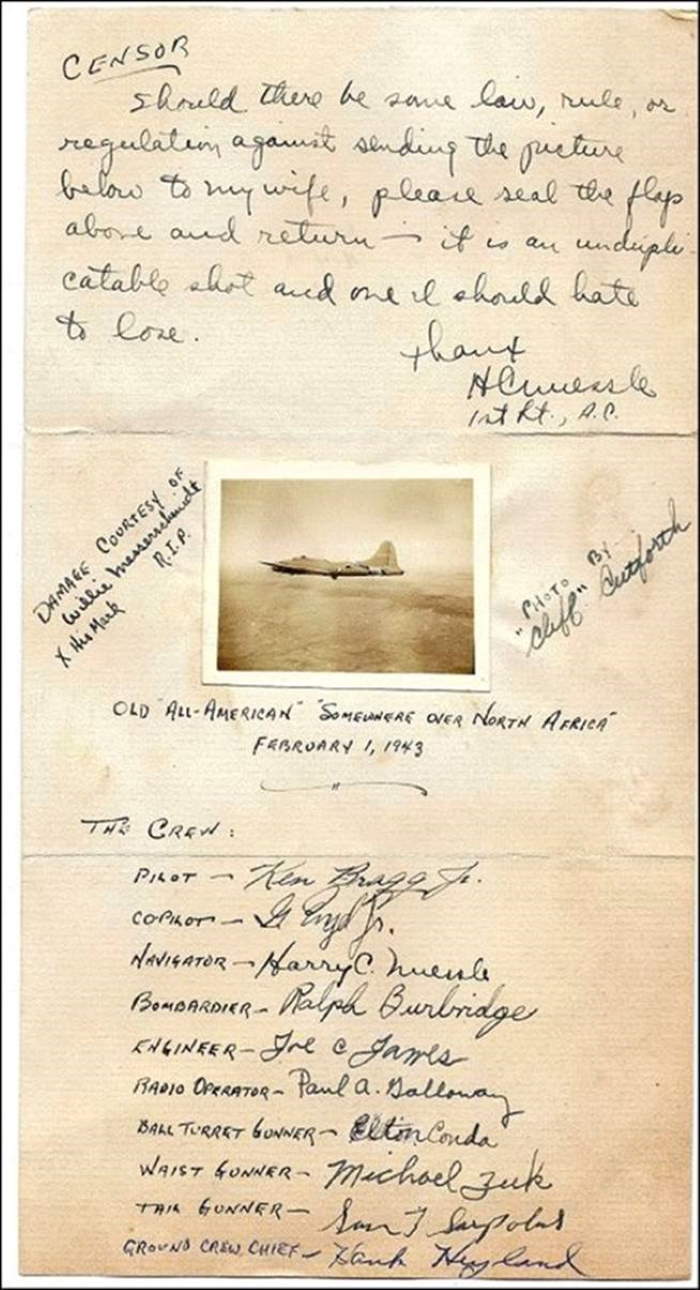 CENSOR
Should there be some law, rule, or
regulation against sending the picture
below to my wife, please seal the flaps
above and return — it is an undupli-
catable shot and one I should hate
to lose.
Thanx
HCNuessle
1st Lt., A.C.
DAMAGE COURTESY OF
Willie Messerschmidt
X His Mark R.I.P.
"PHOTO BY
"Cliff" Cutforth
OLD "ALL-AMERICAN" "SOMEWHERE OVER NORTH AFRICA"
FEBRUARY 1, 1943
THE CREW:
PILOT — Ken Bragg Jr.
COPILOT — G Boyd Jr.
NAVIGATOR — Harry C. Nuessle
BOMBARDIER — Ralph Burbridge
ENGINEER — Joe C James
RADIO OPERATOR — Paul A. Galloway
BALL TURRET GUNNER — Elton Conda
WAIST GUNNER — Michael Zuk
TAIL GUNNER — Sam T Sarpolus
GROUND CREW CHIEF — Hank Hyland